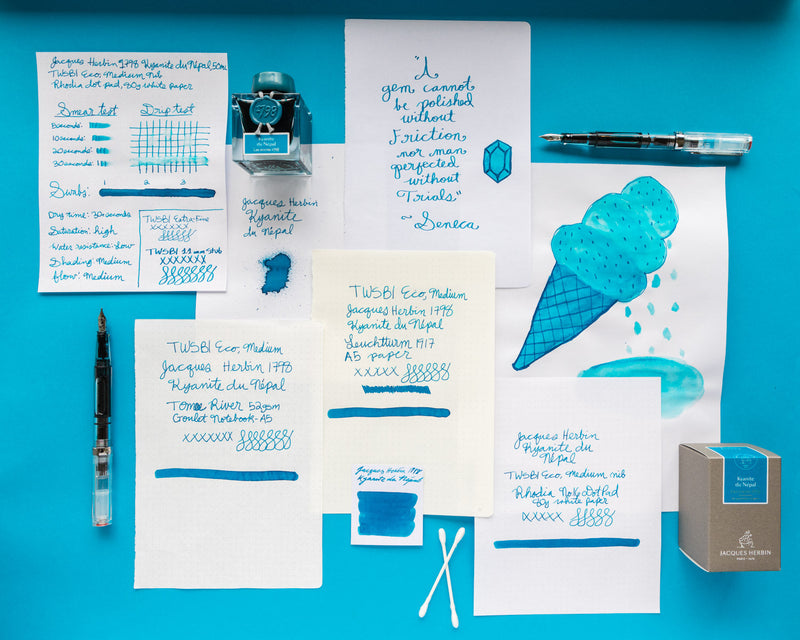 Jacques Herbin 1798 Kyanite du Népal, 50mL
TWSBI Eco, Medium Nib
Rhodia dot pad, 80g white paper
Smear test
Drip test
5 seconds:
10 seconds:
20 seconds:
30 seconds:
1 2 3
Swabs:
Dry time: 30 seconds
Saturation: high
Water resistance: low
Shading: Medium
flow: Medium
TWSBI Extra-Fine
xxxxxxx
TWSBI 1.1 mm Stub
XXXXXXX
1798
Kyanite
du Népal
Jacques Herbin
Kyanite
du Népal
"A
gem cannot
be polished
without
Friction
nor man
perfected
without
Trials"
~ Seneca
TWSBI Eco, Medium
Jacques Herbin 1798
Kyanite du Népal
Leuchtturm 1917
A5 paper
xxxxx
TWSBI Eco, Medium
Jacques Herbin 1798
Kyanite du Népal
Tomoe River 52gsm
Goulet Notebook-A5
xxxxxxx
Jacques Herbin 1798
Kyanite du Népal
Jacques Herbin
Kyanite du
Népal
TWSBI Eco, Medium nib
Rhodia No16 Dot Pad
80g white paper
xxxxx
Kyanite
du Népal
JACQUES HERBIN